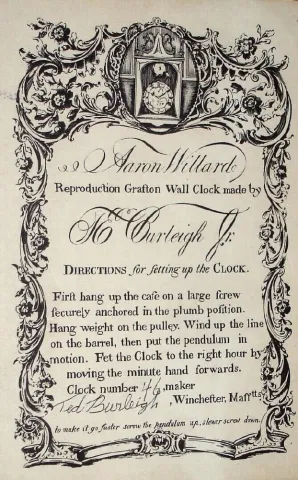 Aaron Willard
Reproduction Grafton Wall Clock made by
Burleigh Jr.
DIRECTIONS for ſetting up the CLOCK.
Firſt hang up the caſe on a large ſcrew
ſecurely anchored in the plumb poſition.
Hang weight on the pulley. Wind up the line
on the barrel, then put the pendulum in
motion. Fet the Clock to the right hour by
moving the minute hand forwards.
Clock number 46, maker
Ted Burleigh, Winchefter, Maſſtts
to make it go faster screw the pendulum up, slower screw down.